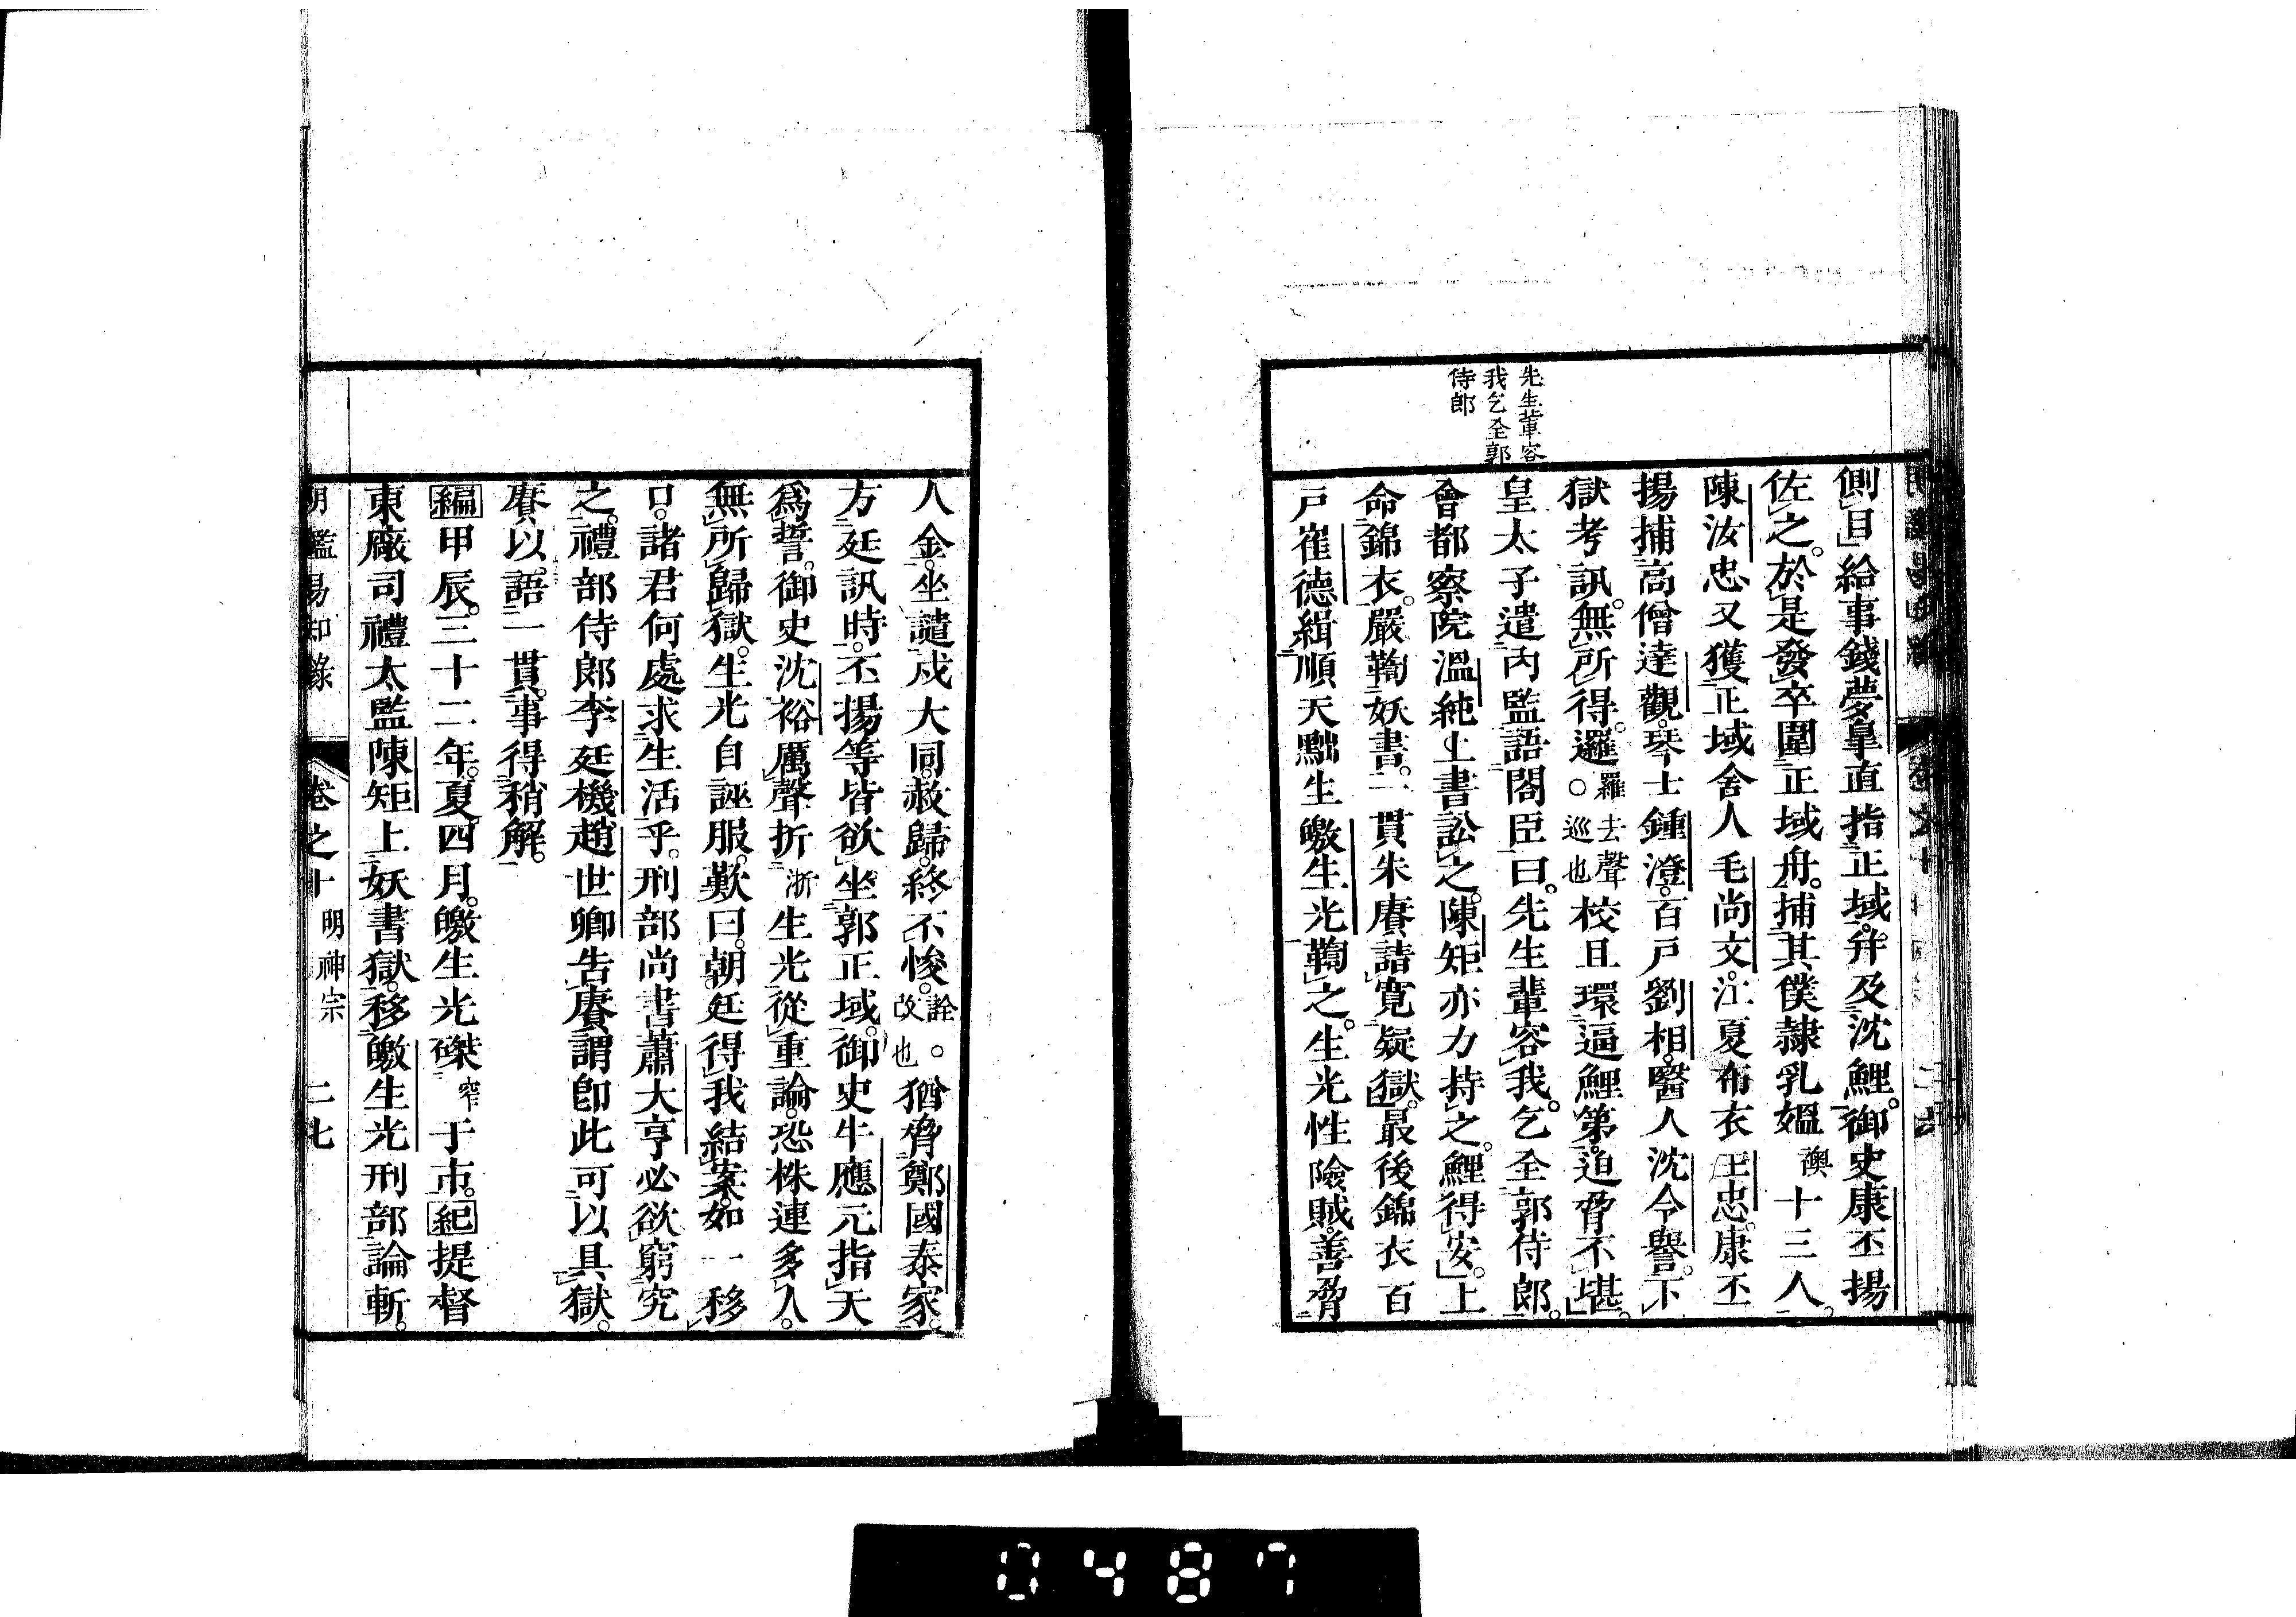 先生輩容
我乞全郭
侍郎
側目給事錢夢皐直指正域。并及沈鯉。御史康丕揚
佐之。於是發卒圍正域舟。捕其僕隷乳媼襖十三人。
陳汝忠又獲正域舍人毛尚文。江夏布衣王忠。康丕
揚捕高僧達觀。琴士鍾澄。百戸劉相。醫人沈令譽。下
獄考訊。無所得。邏羅去聲○巡也校且環逼鯉第。迫脅不堪。
皇太子遣內監語閣臣曰。先生輩容我。乞全郭侍郎。
會都察院溫純上書訟之。陳矩亦力持之。鯉得安。上
命錦衣。嚴鞫妖書。一貫朱賡請寬疑獄。最後錦衣百
戸崔德緝順天黜生皦生光鞫之。生光性險賊。善脅
人金。坐譴戍大同。赦歸。終不悛。詮。改也猶脅鄭國泰家。
方廷訊時。丕揚等皆欲坐郭正域。御史牛應元指天
爲誓。御史沈裕厲聲折浙生光從重論。恐株連多人。
無所歸獄。生光自誣服。歎曰。朝廷得我結案。如一移
口。諸君何處求生活乎。刑部尚書蕭大亨必欲窮究
之。禮部侍郎李廷機趙世卿告賡謂卽此可以具獄。
賡以語一貫。事得稍解。
編甲辰。三十二年。夏四月。皦生光磔窄于市。紀提督
東廠司禮太監陳矩上妖書獄。移皦生光刑部論斬。
明鑑易知錄 卷之十 明神宗 二七